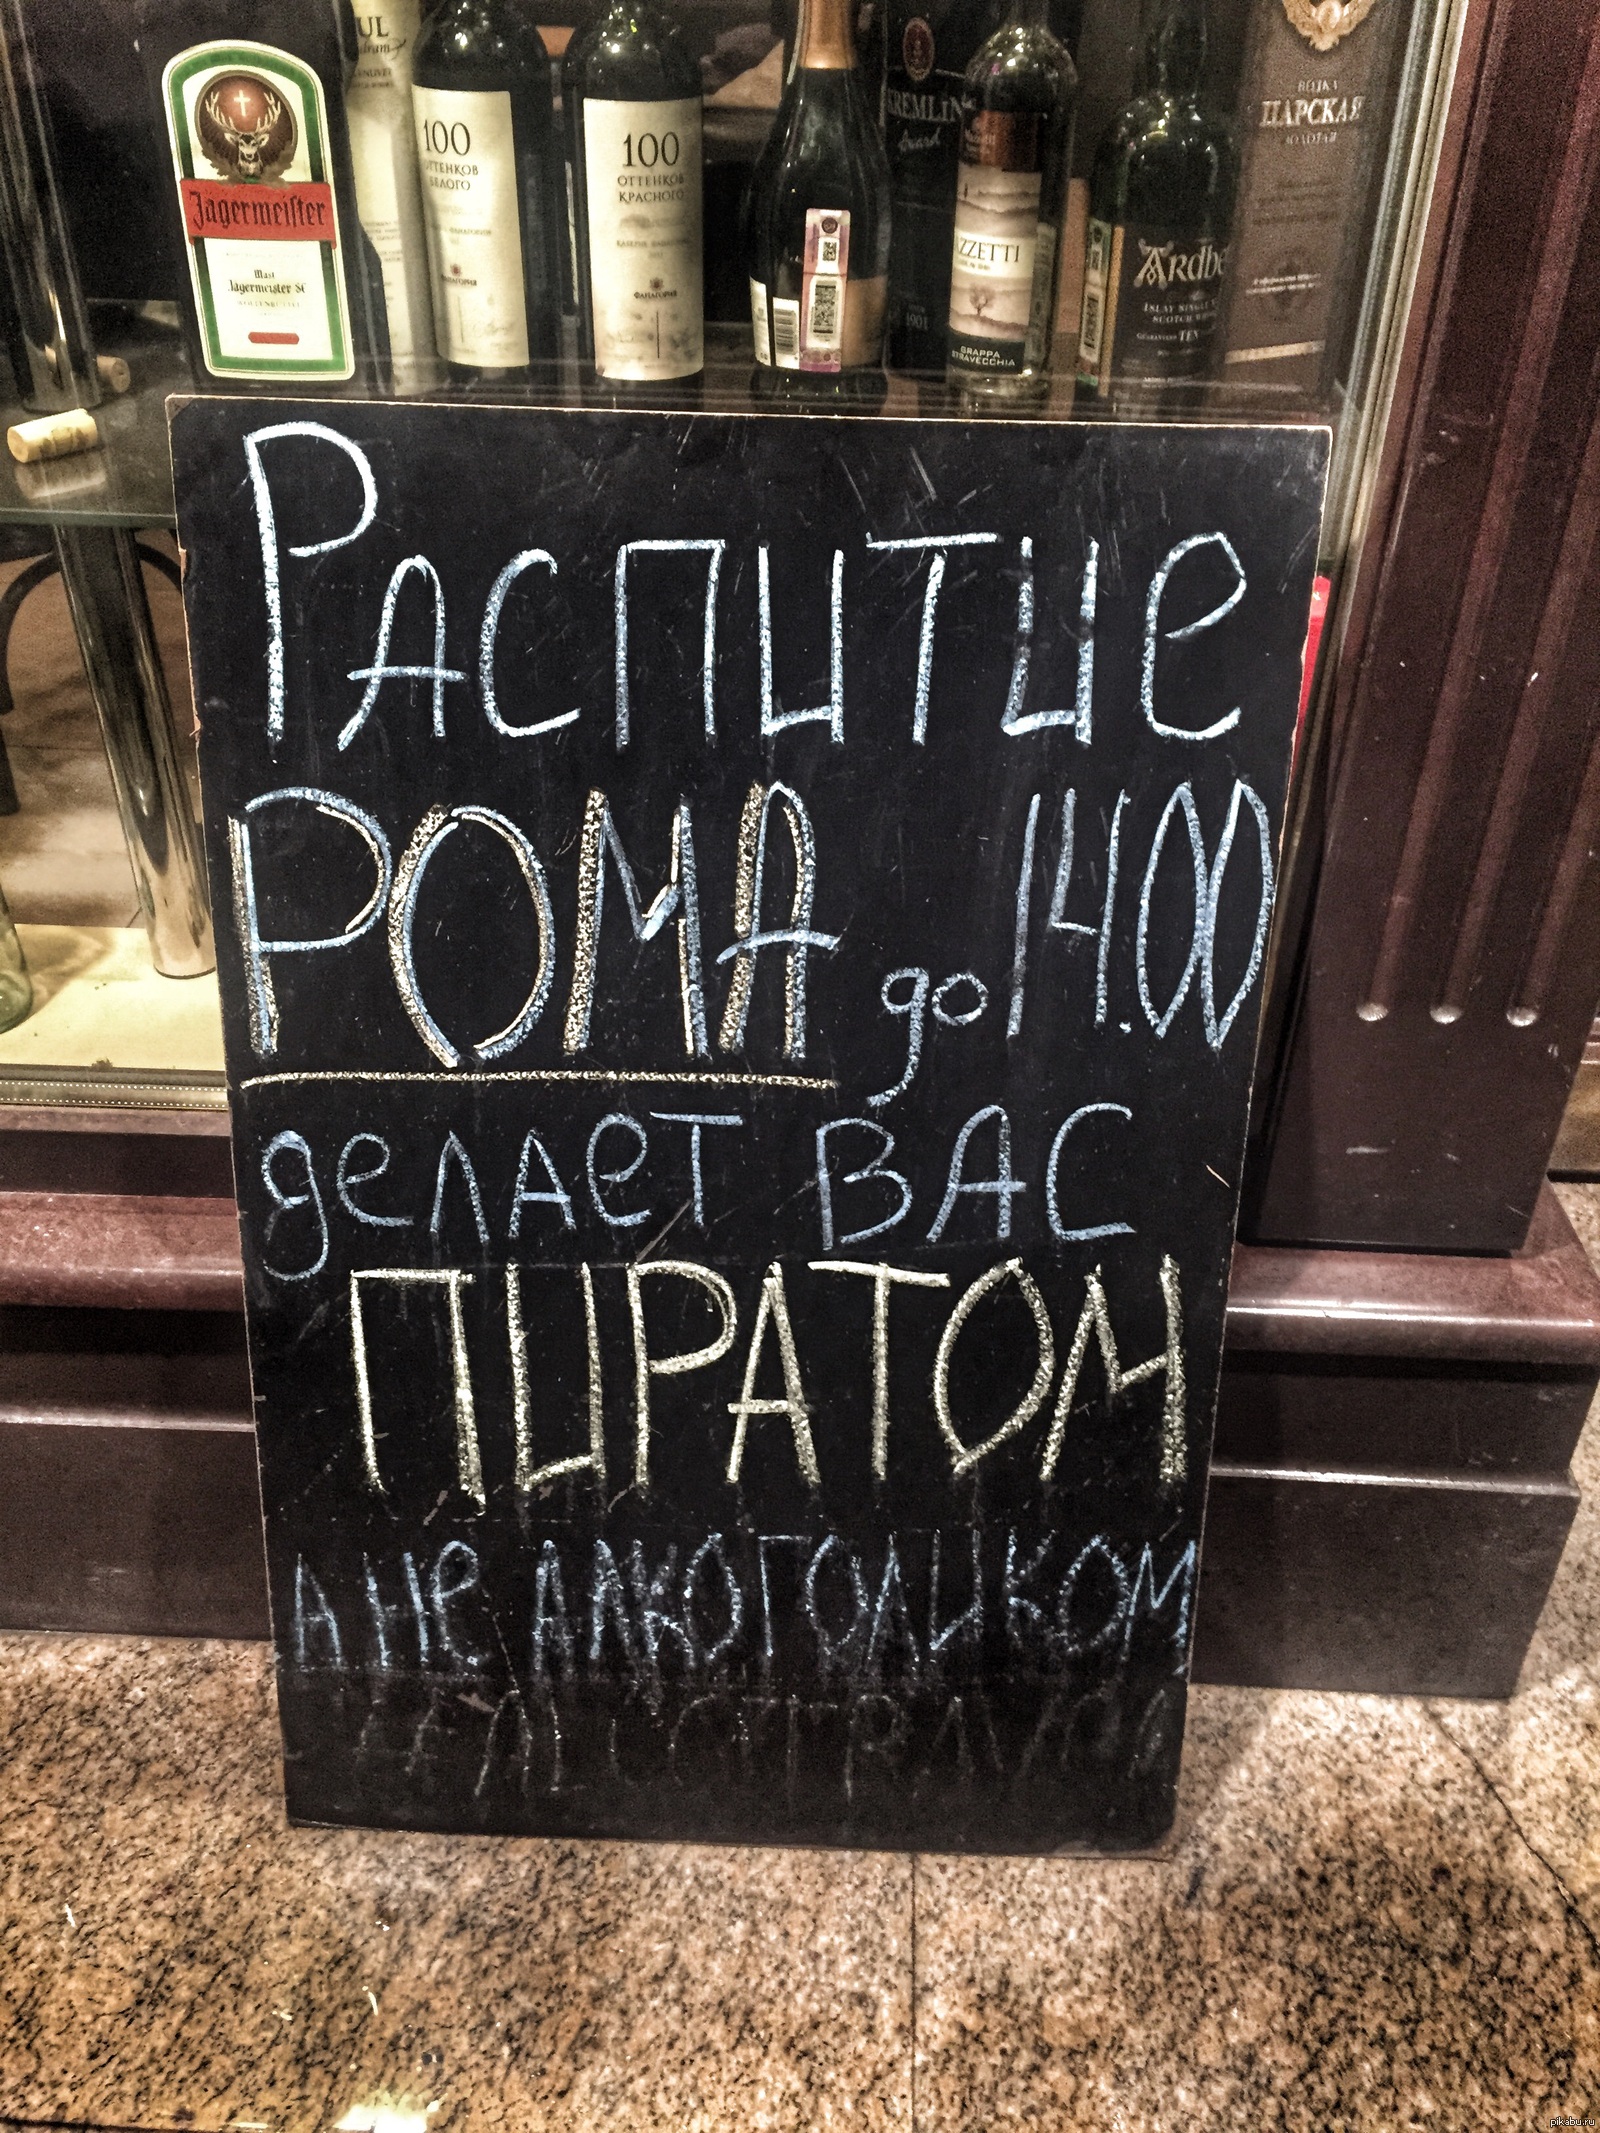 100
ОТТЕНКОВ
БЕЛОГО
100
ОТТЕНКОВ
КРАСНОГО
ФАНАГОРИЯ
KREMLIN
Award
ВОДКА
ЦАРСКАЯ
ЗОЛОТАЯ
Jägermeister
Mast
Jägermeister SE
GRAPPA
STRAVECCHIA
ISLAY SINGLE
TEN
1901
Распитие
РОМА до 14.00
делает ВАС
ПИРАТОМ
А не алкоголиком
pikabu.ru